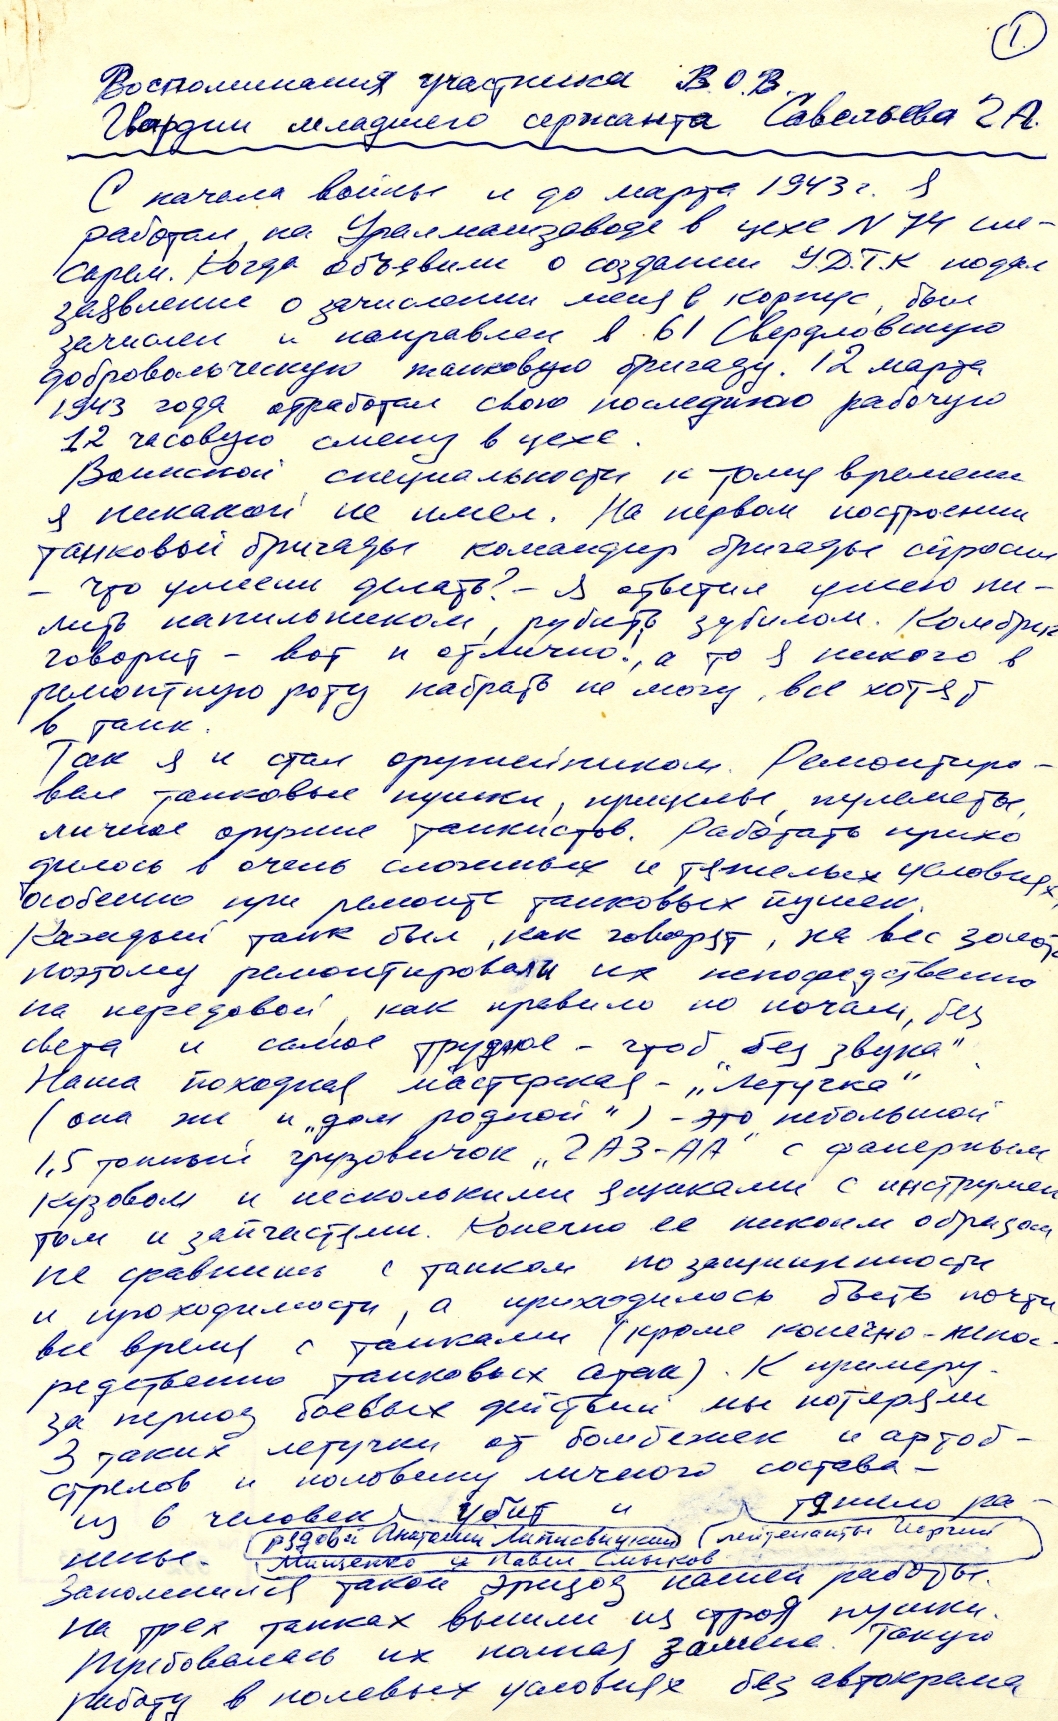 1.
Воспоминания участника В.О.В.
Гвардии младшего сержанта Савельева Г.А.
С начала войны и до марта 1943 г. я
работал на Уралмашзаводе в цехе N 74 сле-
сарем. Когда объявили о создании У.Д.Т.К подал
заявление о зачислении меня в корпус, был
зачислен и направлен в 61 Свердловскую
добровольческую танковую бригаду. 12 марта
1943 года отработал свою последнюю рабочую
12 часовую смену в цехе.
Воинской специальности к тому времени
я никакой не имел. На первом построении
танковой бригады командир бригады спросил
- что умеешь делать? - Я ответил умею пи-
лить напильником, рубить зубилом. Комбриг
говорит - вот и отлично!, а то я никого в
ремонтную роту набрать не могу, все хотят
в танк.
Так я и стал оружейником. Ремонтиро-
вал танковые пушки, прицелы, пулеметы,
личное оружие танкистов. Работать прихо
дилось в очень сложных и тяжелых условиях,
особенно при ремонте танковых пушек.
Каждый танк был, как говорят, на вес золота
поэтому ремонтировали их непосредственно
на передовой, как правило по ночам, без
света и самое трудное - чтоб „без звука"
Наша походная мастерская - „Летучка"
(она же и „дом родной") - это небольшой
1,5 тонный грузовичок „ГАЗ-АА" с фанерным
кузовом и несколькими ящиками с инструмен
том и запчастями. Конечно ее никоим образом
не сравнишь с танком по защищенности
и проходимости, а приходилось быть почти
все время с танками (кроме конечно - непос-
редственно танковых атак). К примеру -
за период боевых действий мы потеряли
3 таких летучки от бомбежек и артоб-
стрелов и половину личного состава -
из 6 человек убит и тяжело ра-
нены. (рядовой Анатолий (лейтенанты
Мищенко и Павел Смыков
Запомнился такой эпизод нашей работы.
На трех танках вышли из строя пушки.
Требовалась их полная замена. Такую
работу в полевых условиях без автокрана